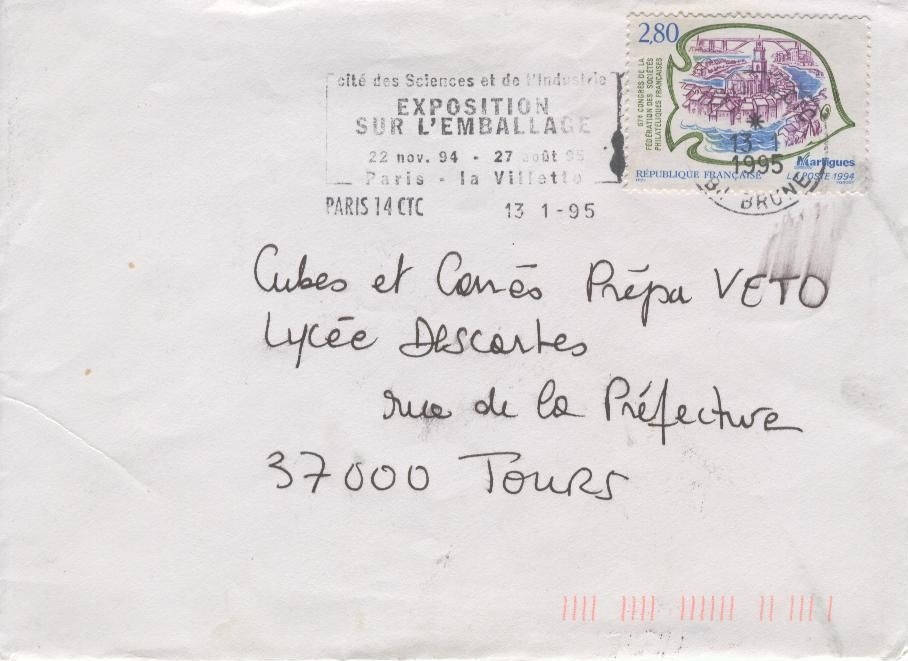 cité des Sciences et de l'Industrie
EXPOSITION
SUR L'EMBALLAGE
22 nov. 94 - 27 août 95
Paris - la Villette
PARIS 14 CTC 13 1-95
2,80
67e CONGRÈS DE LA
FÉDÉRATION DES SOCIÉTÉS
PHILATÉLIQUES FRANÇAISES
13-1
1995
BRUNE
Martigues
RÉPUBLIQUE FRANÇAISE
LA POSTE 1994
Cubes et Carrés Prépa VETO
Lycée Descartes
rue de la Préfecture
37000 TOURS